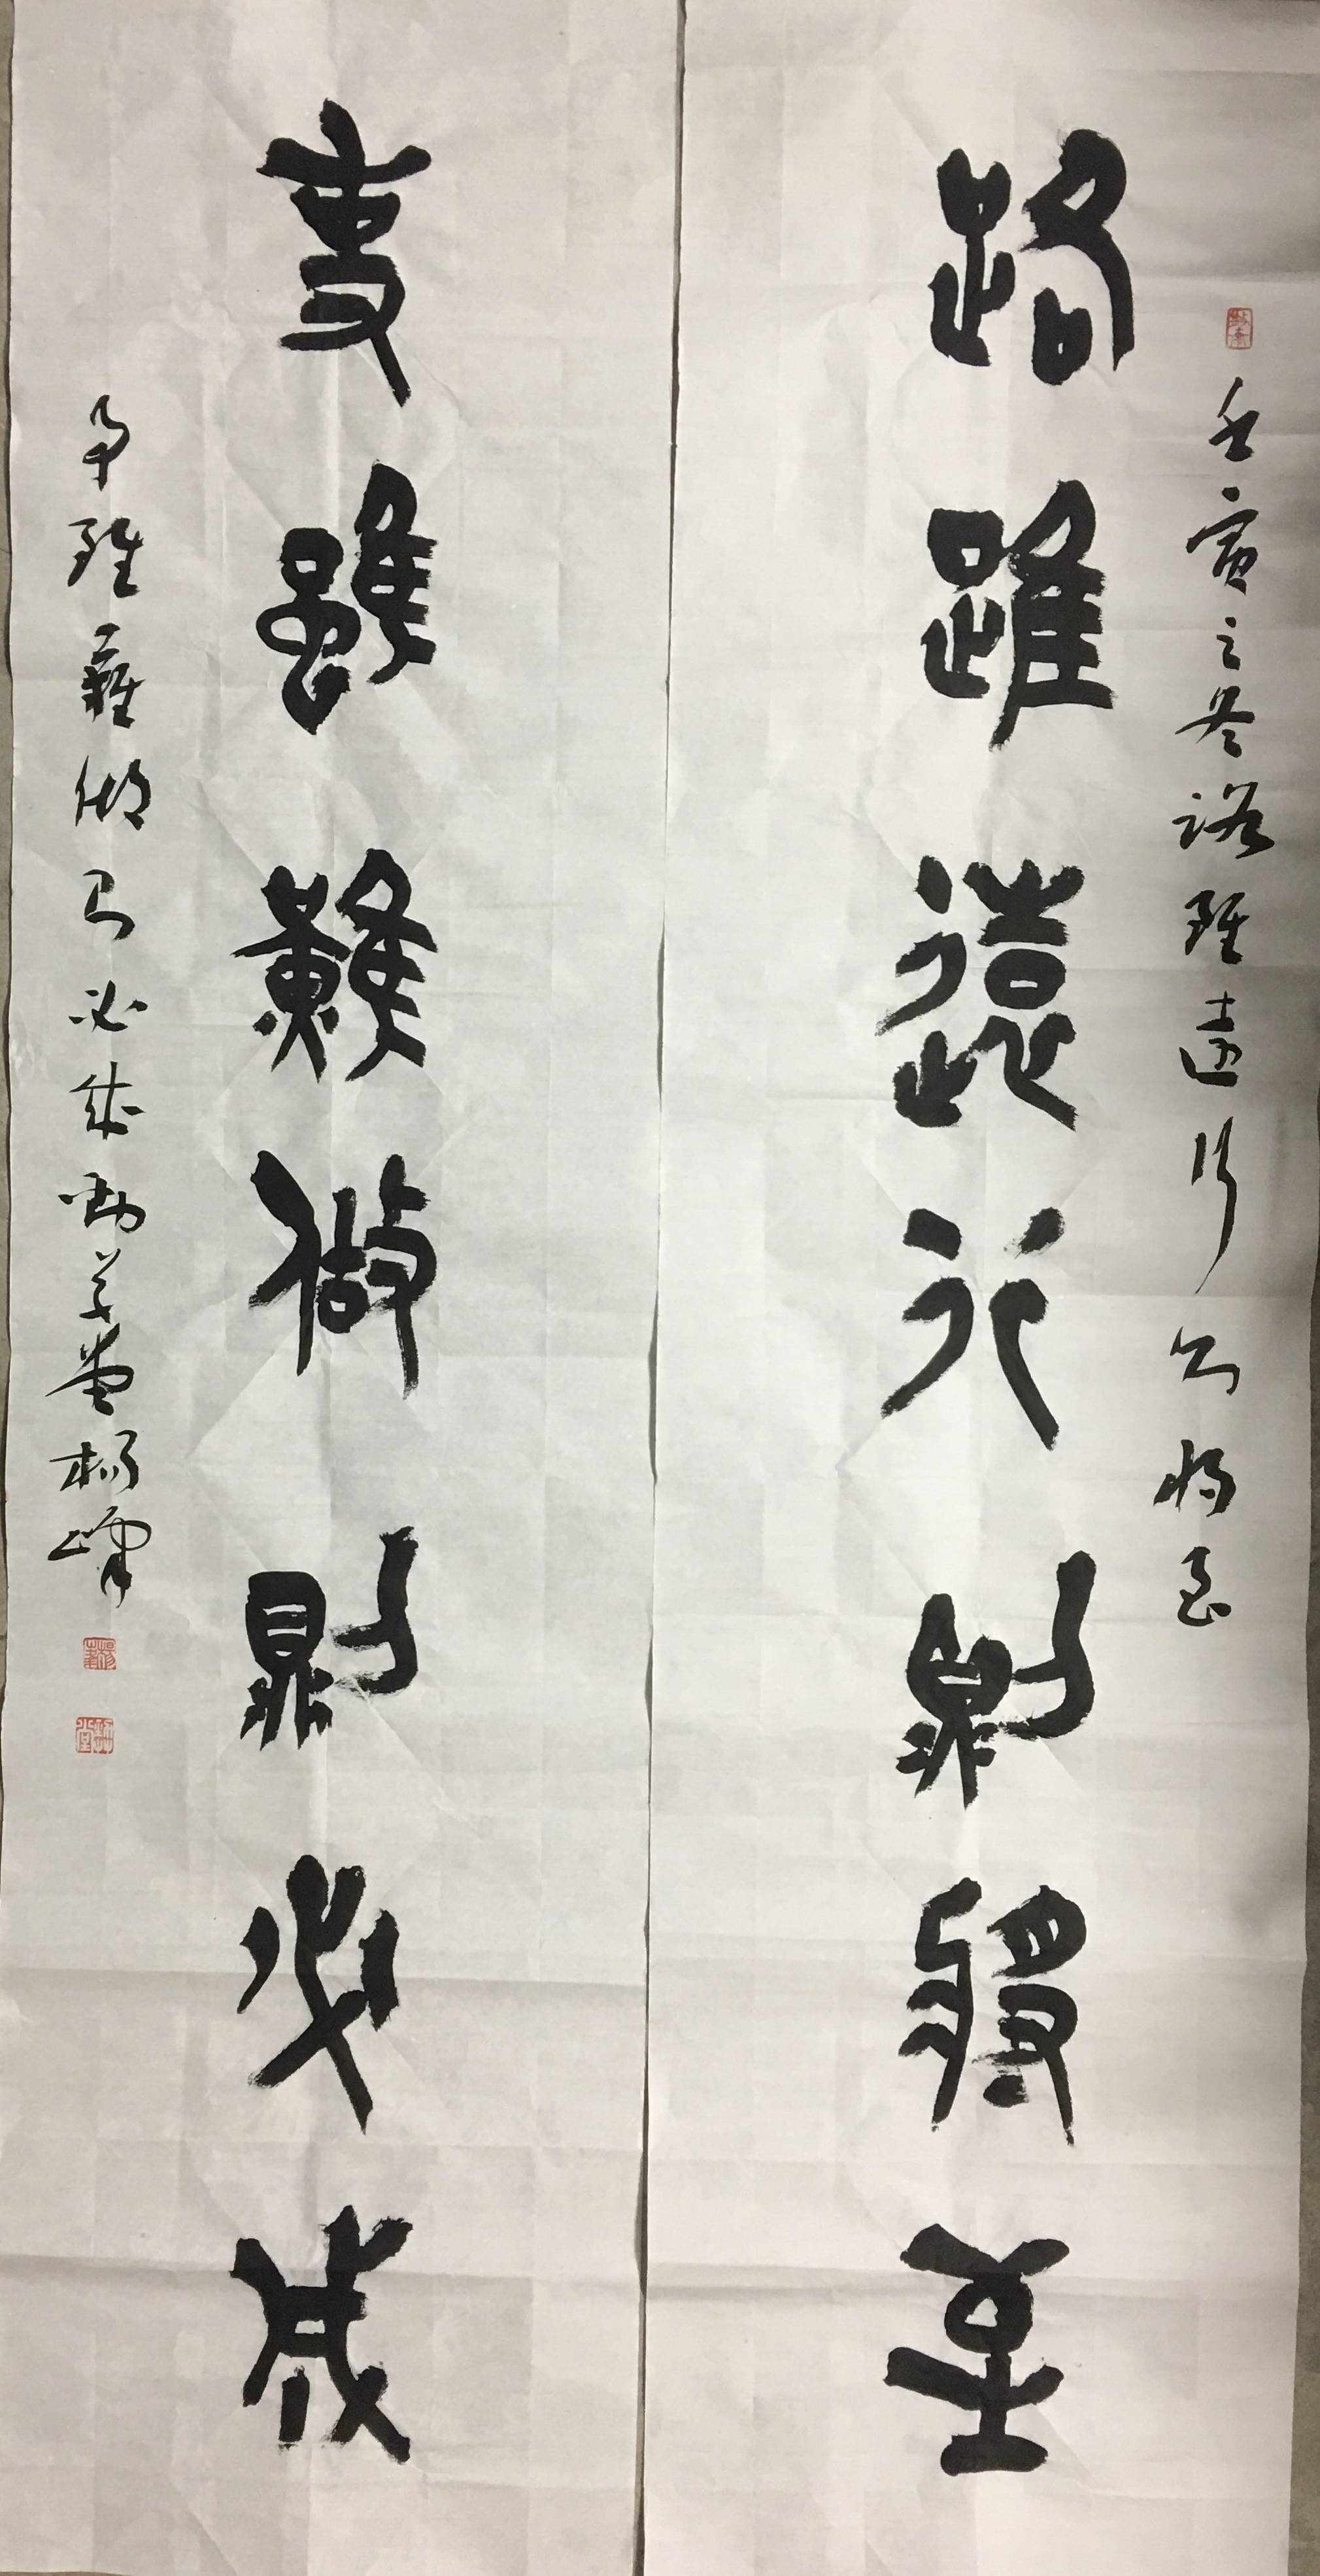 壬寅之冬路雖遠行則將至
路雖遠行則將至
事雖難做則必成
事雖難做則必成勤草堂楊